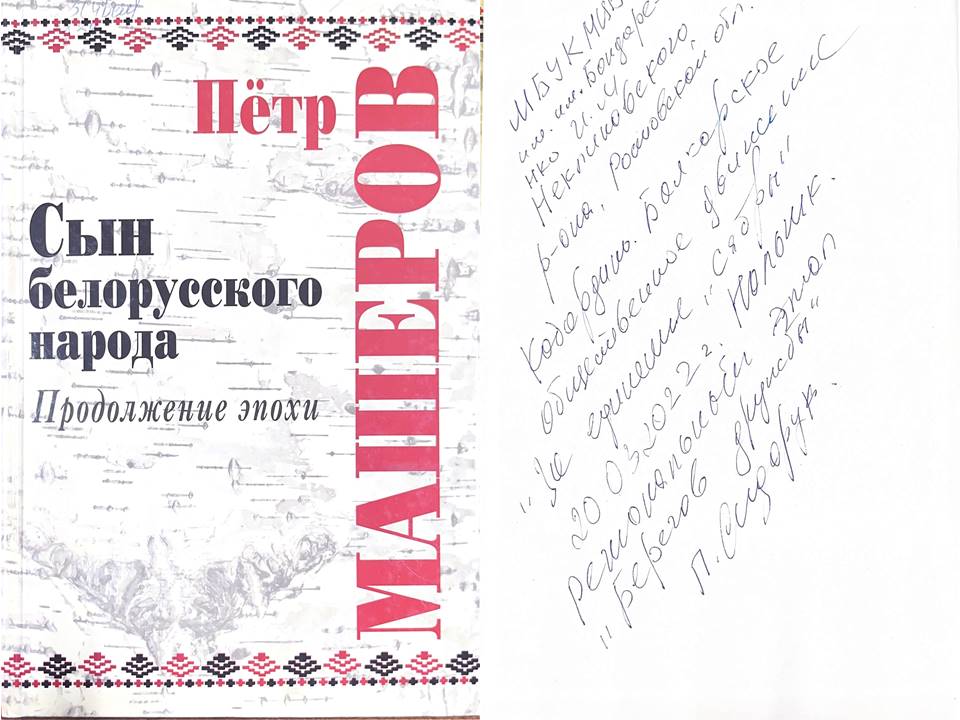 Пётр
МАШЕРОВ
Сын
белорусского
народа
Продолжение эпохи
МБУК МЦБ
им. им. Бондаре-
нко И. М.
Неклиновского
р-она, Ростовской обл.
Болгарское
общественное движение
"За единение "сябры"
20 03 2022 г.
региональный этап
"Берегов дружбы"
П. Сидорук